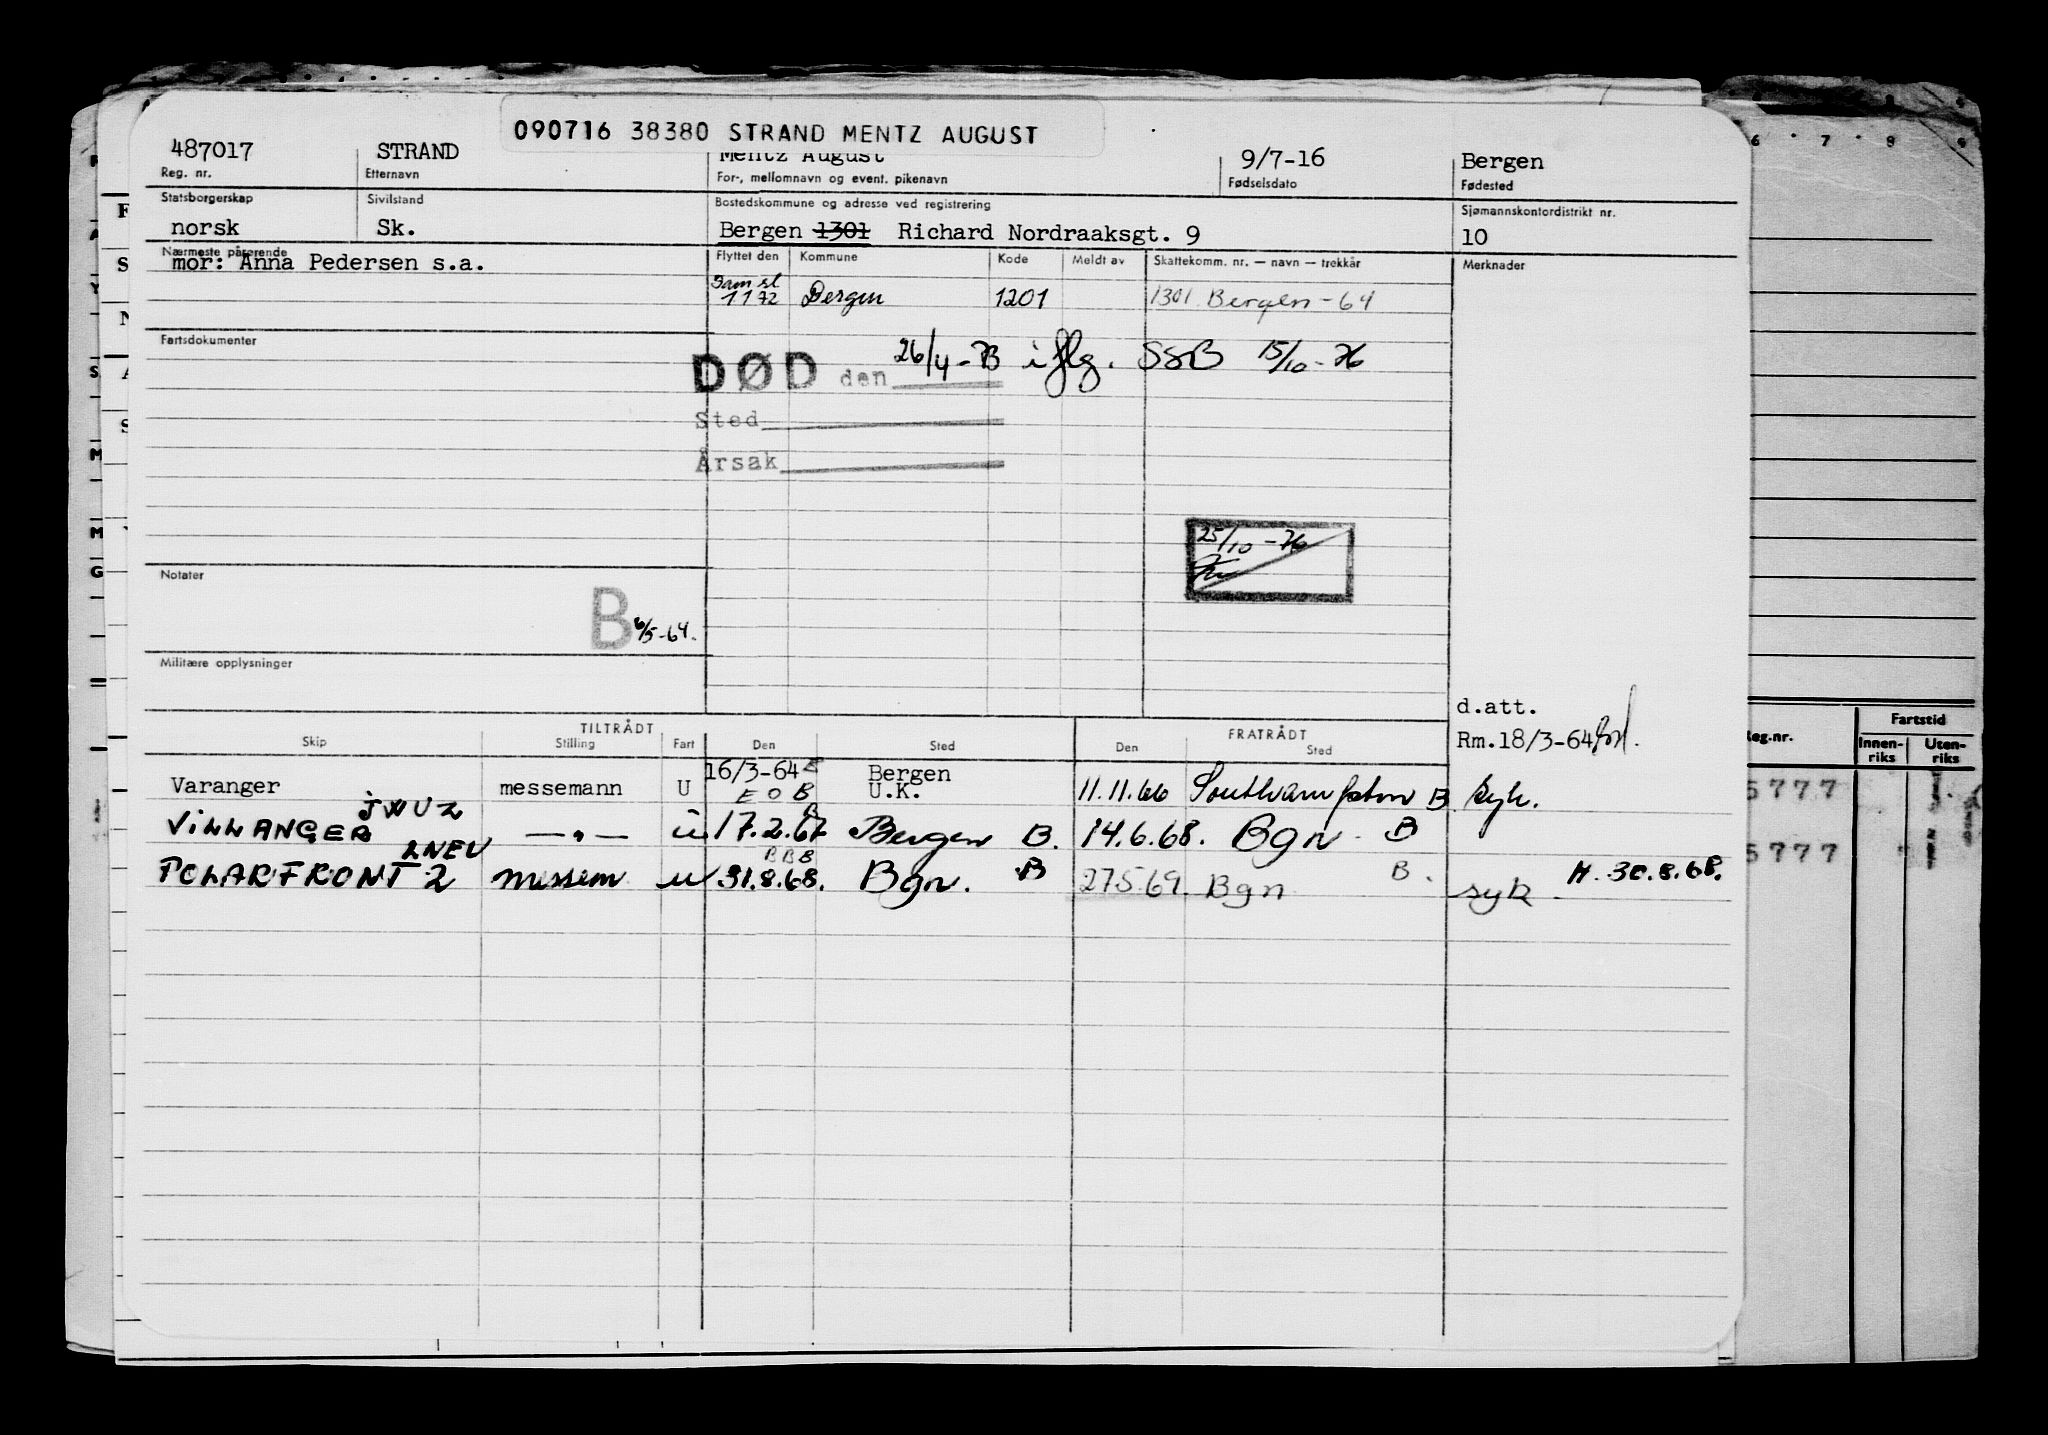 090716 38380 STRAND MENTZ AUGUST
487017 STRAND Mentz August 9/7-16 Bergen
Reg. nr. Etternavn For-, mellomnavn og event. pikenavn Fødselsdato Fødested
Statsborgerskap Sivilstand Bostedskommune og adresse ved registrering Sjømannskontordistrikt nr.
norsk Sk. Bergen 1301 Richard Nordraaksgt. 9 10
Nærmeste pårørende Flyttet den Kommune Kode Meldt av Skattekomm. nr. — navn — trekkår Merknader
mor: Anna Pedersen s.a.
1 1 72 Bergen 1201 1301 Bergen - 64
Fartsdokumenter
DØD den 26/4-73 iflg. SSB 15/10-76
Sted
Årsak
25/10-76
Notater
B 6/5-64.
Militære opplysninger
d.att.
Rm.18/3-64
TILTRÅDT FRATRÅDT
Skip Stilling Fart Den Sted Den Sted
Varanger messemann U 16/3-64 E Bergen U.K. 11.11.66 Southampton B syk.
E O B
JWUZ B
VILLANGER —"— u 17.2.67 Bergen B. 14.6.68. Bgn. B
LNEV B B B
POLARFRONT 2 messem u 31.8.68. Bgn. B 27 5 69. Bgn B. syk. H. 30.8.68.
Reg.nr. Fartstid
Innenriks Utenriks
5777
5777
6 7 8 9